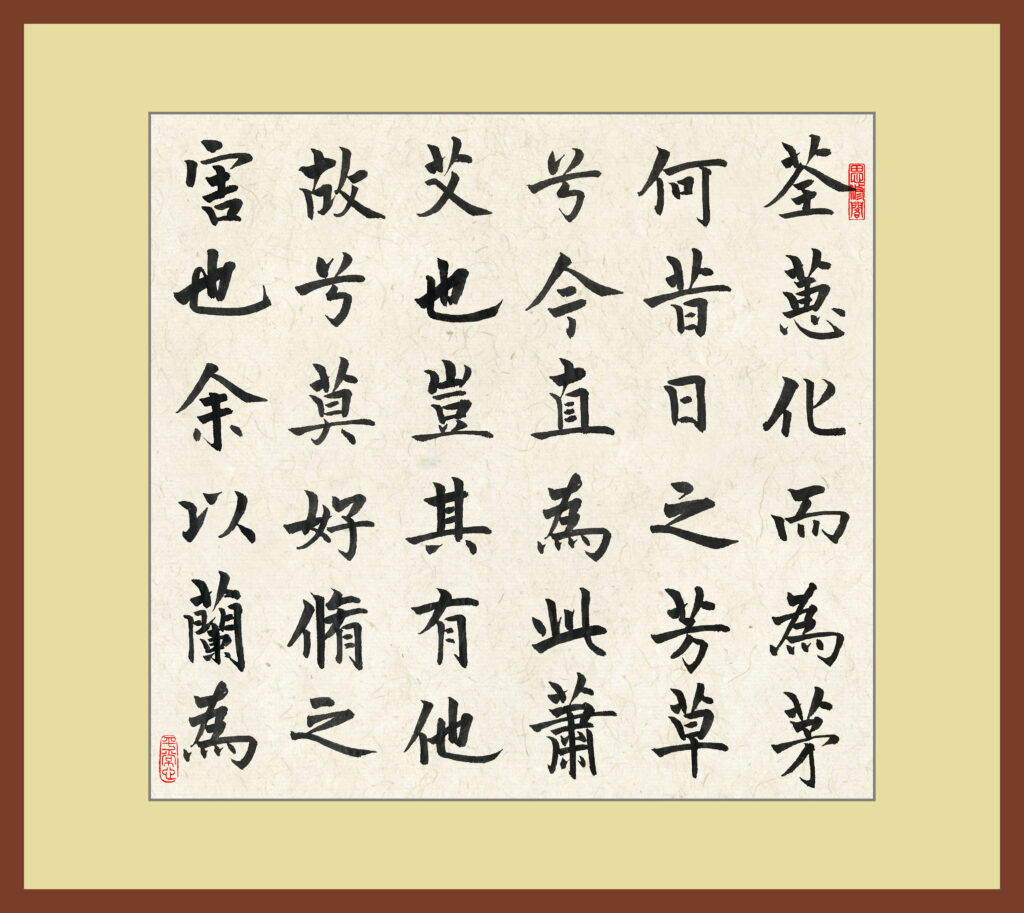 荃蕙化而為茅
何昔日之芳草
兮今直為此蕭
艾也豈其有他
故兮莫好脩之
害也余以蘭為